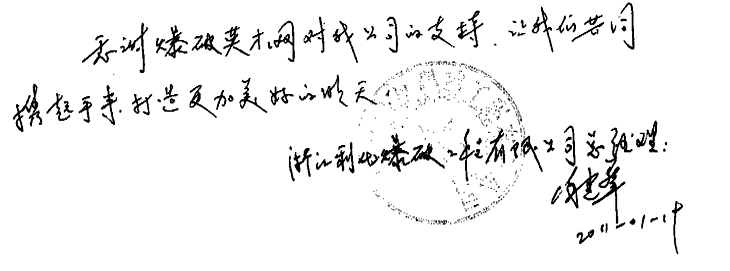 感谢爆破英才网对我公司的支持，让我们共同
携起手来，打造更加美好的明天。
浙江利化爆破工程有限公司总经理：
2011-01-19